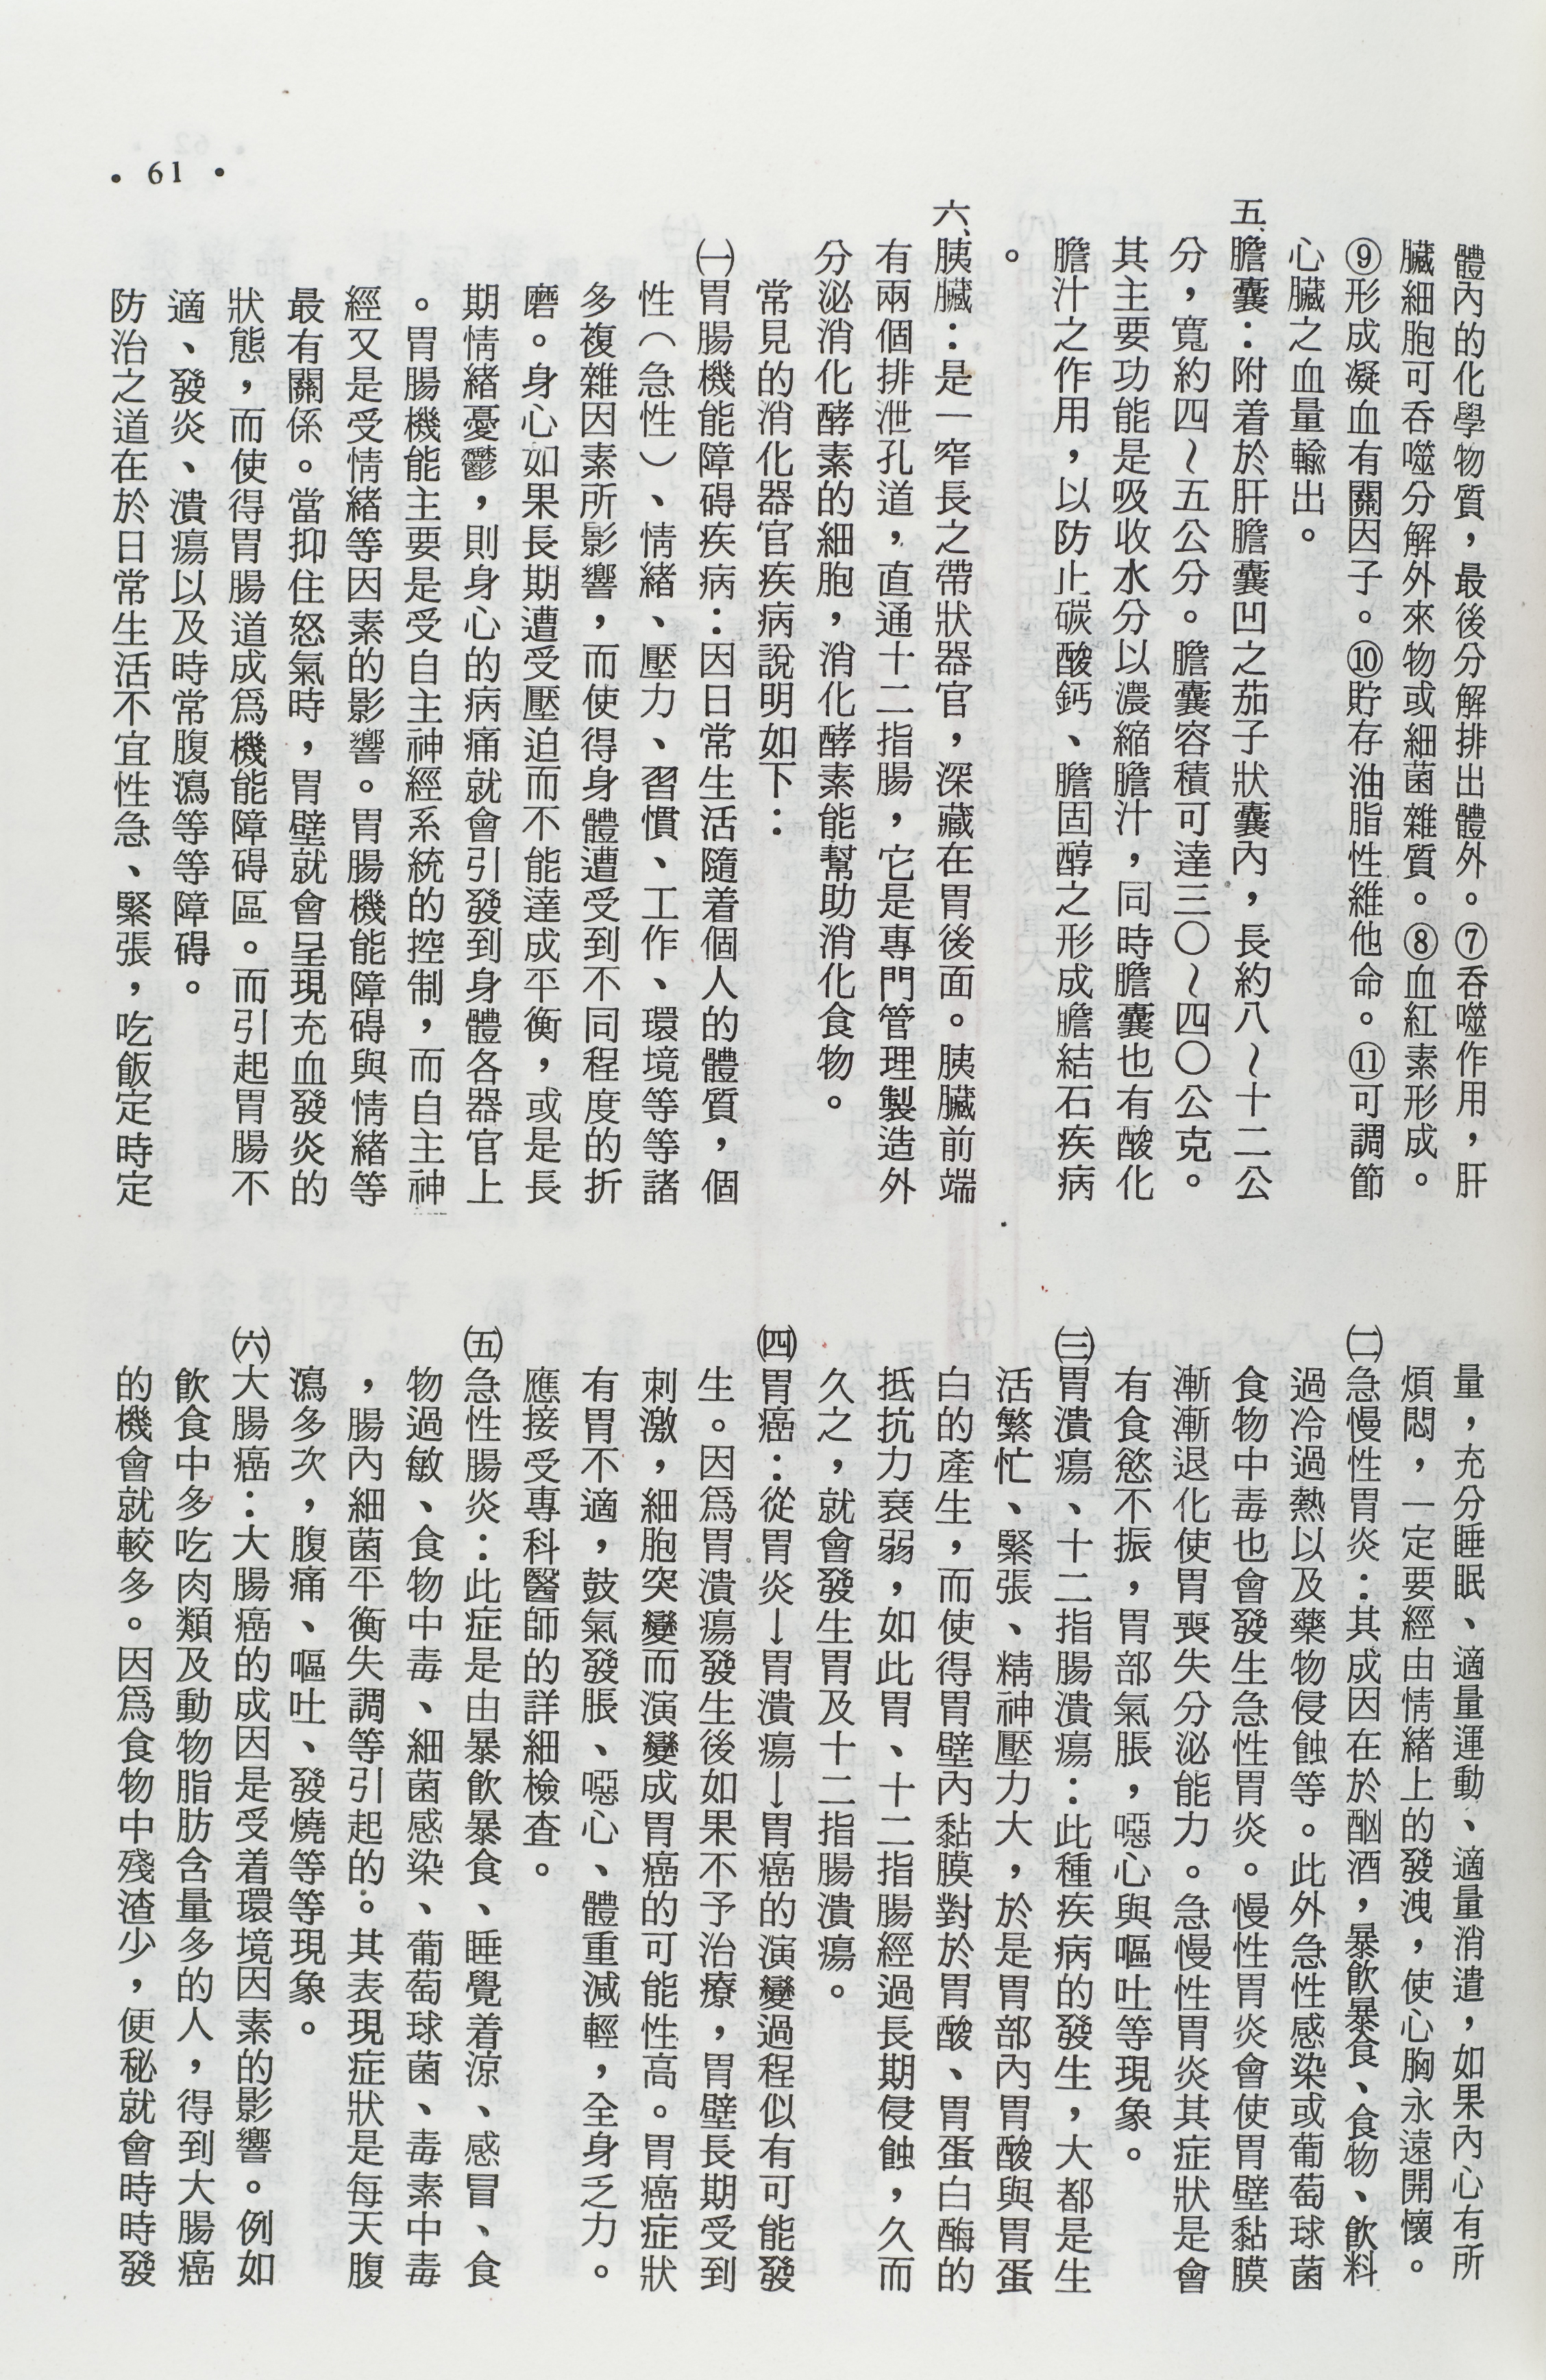 體內的化學物質，最後分解排出體外。⑦吞噬作用，肝
臟細胞可吞噬分解外來物或細菌雜質。⑧血紅素形成。
⑨形成凝血有關因子。⑩貯存油脂性維他命。⑪可調節
心臟之血量輸出。
五、膽囊：附着於肝膽囊凹之茄子狀囊內，長約八～十二公
分，寬約四～五公分。膽囊容積可達三〇～四〇公克。
其主要功能是吸收水分以濃縮膽汁，同時膽囊也有酸化
膽汁之作用，以防止碳酸鈣、膽固醇之形成膽結石疾病
。
六、胰臟：是一窄長之帶狀器官，深藏在胃後面。胰臟前端
有兩個排泄孔道，直通十二指腸，它是專門管理製造外
分泌消化酵素的細胞，消化酵素能幫助消化食物。
常見的消化器官疾病說明如下：
㈠胃腸機能障碍疾病：因日常生活隨着個人的體質，個
性（急性）、情緒、壓力、習慣、工作、環境等等諸
多複雜因素所影響，而使得身體遭受到不同程度的折
磨。身心如果長期遭受壓迫而不能達成平衡，或是長
期情緒憂鬱，則身心的病痛就會引發到身體各器官上
。胃腸機能主要是受自主神經系統的控制，而自主神
經又是受情緒等因素的影響。胃腸機能障碍與情緒等
最有關係。當抑住怒氣時，胃壁就會呈現充血發炎的
狀態，而使得胃腸道成爲機能障碍區。而引起胃腸不
適、發炎、潰瘍以及時常腹瀉等等障碍。
防治之道在於日常生活不宜性急、緊張，吃飯定時定
量，充分睡眠、適量運動、適量消遣，如果內心有所
煩悶，一定要經由情緒上的發洩，使心胸永遠開懷。
㈡急慢性胃炎：其成因在於酗酒，暴飲暴食、食物、飲料
過冷過熱以及藥物侵蝕等。此外急性感染或葡萄球菌
食物中毒也會發生急性胃炎。慢性胃炎會使胃壁黏膜
漸漸退化使胃喪失分泌能力。急慢性胃炎其症狀是會
有食慾不振，胃部氣脹，噁心與嘔吐等現象。
㈢胃潰瘍、十二指腸潰瘍：此種疾病的發生，大都是生
活繁忙、緊張、精神壓力大，於是胃部內胃酸與胃蛋
白的產生，而使得胃壁內黏膜對於胃酸、胃蛋白酶的
抵抗力衰弱，如此胃、十二指腸經過長期侵蝕，久而
久之，就會發生胃及十二指腸潰瘍。
㈣胃癌：從胃炎→胃潰瘍→胃癌的演變過程似有可能發
生。因爲胃潰瘍發生後如果不予治療，胃壁長期受到
刺激，細胞突變而演變成胃癌的可能性高。胃癌症狀
有胃不適，鼓氣發脹、噁心、體重減輕，全身乏力。
應接受專科醫師的詳細檢查。
㈤急性腸炎：此症是由暴飲暴食、睡覺着涼、感冒、食
物過敏、食物中毒、細菌感染、葡萄球菌、毒素中毒
，腸內細菌平衡失調等引起的。其表現症狀是每天腹
瀉多次，腹痛、嘔吐、發燒等等現象。
㈥大腸癌：大腸癌的成因是受着環境因素的影響。例如
飲食中多吃肉類及動物脂肪含量多的人，得到大腸癌
的機會就較多。因爲食物中殘渣少，便秘就會時時發
• 61 •